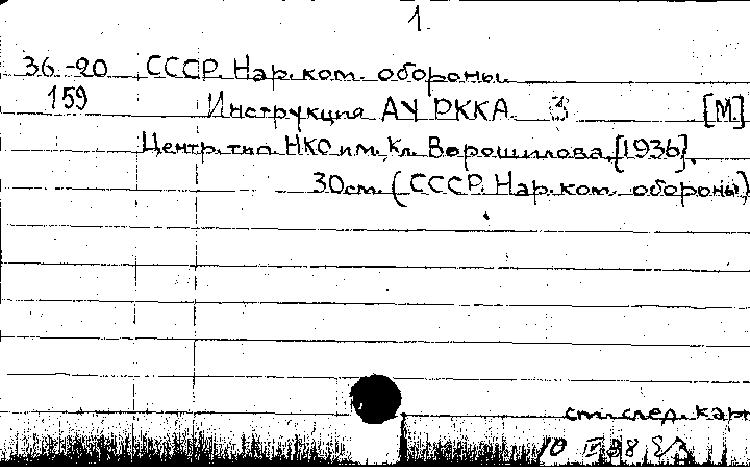 1.
36-20 СССР. Нар. ком. обороны.
159 Инструкция АУ РККА. 3 [М.]
Центр. тип. НКО им. Кл. Ворошилова, [1936].
30см. (СССР. Нар. ком. обороны)
см. след. карт
10 38